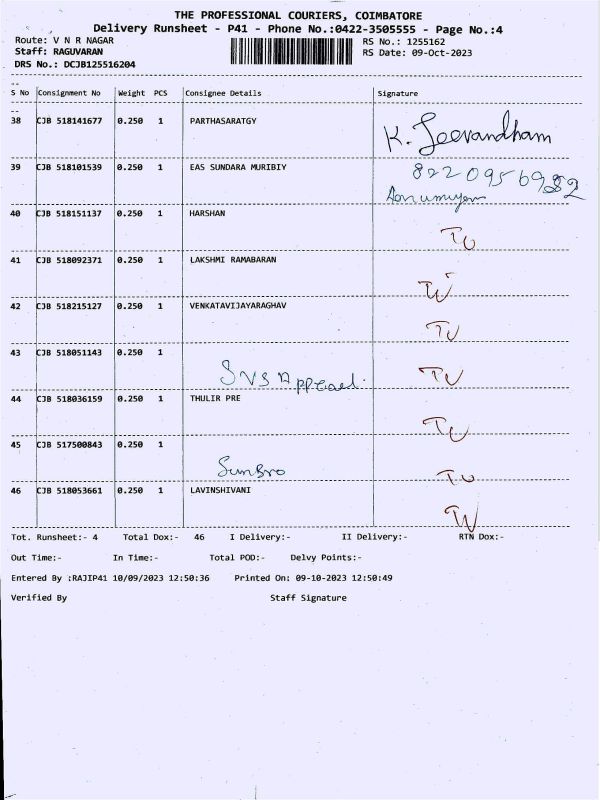 THE PROFESSIONAL COURIERS, COIMBATORE
Delivery Runsheet - P41 - Phone No.:0422-3505555 - Page No.:4
Route: V N R NAGAR RS No.: 1255162
Staff: RAGUVARAN RS Date: 09-Oct-2023
DRS No.: DCJB125516204
S No Consignment No Weight PCS Consignee Details Signature
38 CJB 518141677 0.250 1 PARTHASARATGY
K. Jeevandham
39 CJB 518101539 0.250 1 EAS SUNDARA MURIBIY 8220956982
40 CJB 518151137 0.250 1 HARSHAN
41 CJB 518092371 0.250 1 LAKSHMI RAMABARAN
42 CJB 518215127 0.250 1 VENKATAVIJAYARAGHAV
43 CJB 518051143 0.250 1
SVS
44 CJB 518036159 0.250 1 THULIR PRE
45 CJB 517500843 0.250 1
SunBro
46 CJB 518053661 0.250 1 LAVINSHIVANI
Tot. Runsheet:- 4 Total Dox:- 46 I Delivery:- II Delivery:- RTN Dox:-
Out Time:- In Time:- Total POD:- Delvy Points:-
Entered By :RAJIP41 10/09/2023 12:50:36 Printed On: 09-10-2023 12:50:49
Verified By Staff Signature